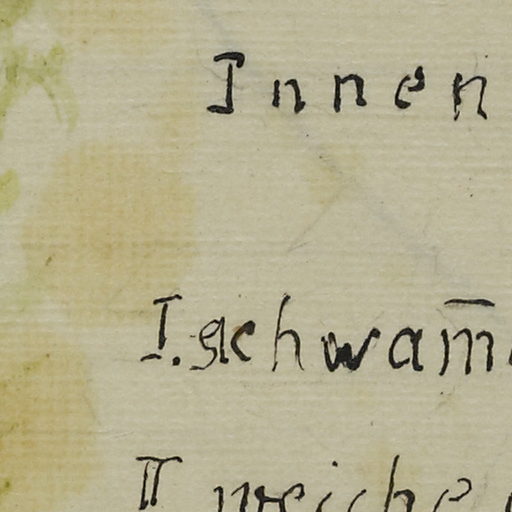 Innen
I. schwam̅
II weiche